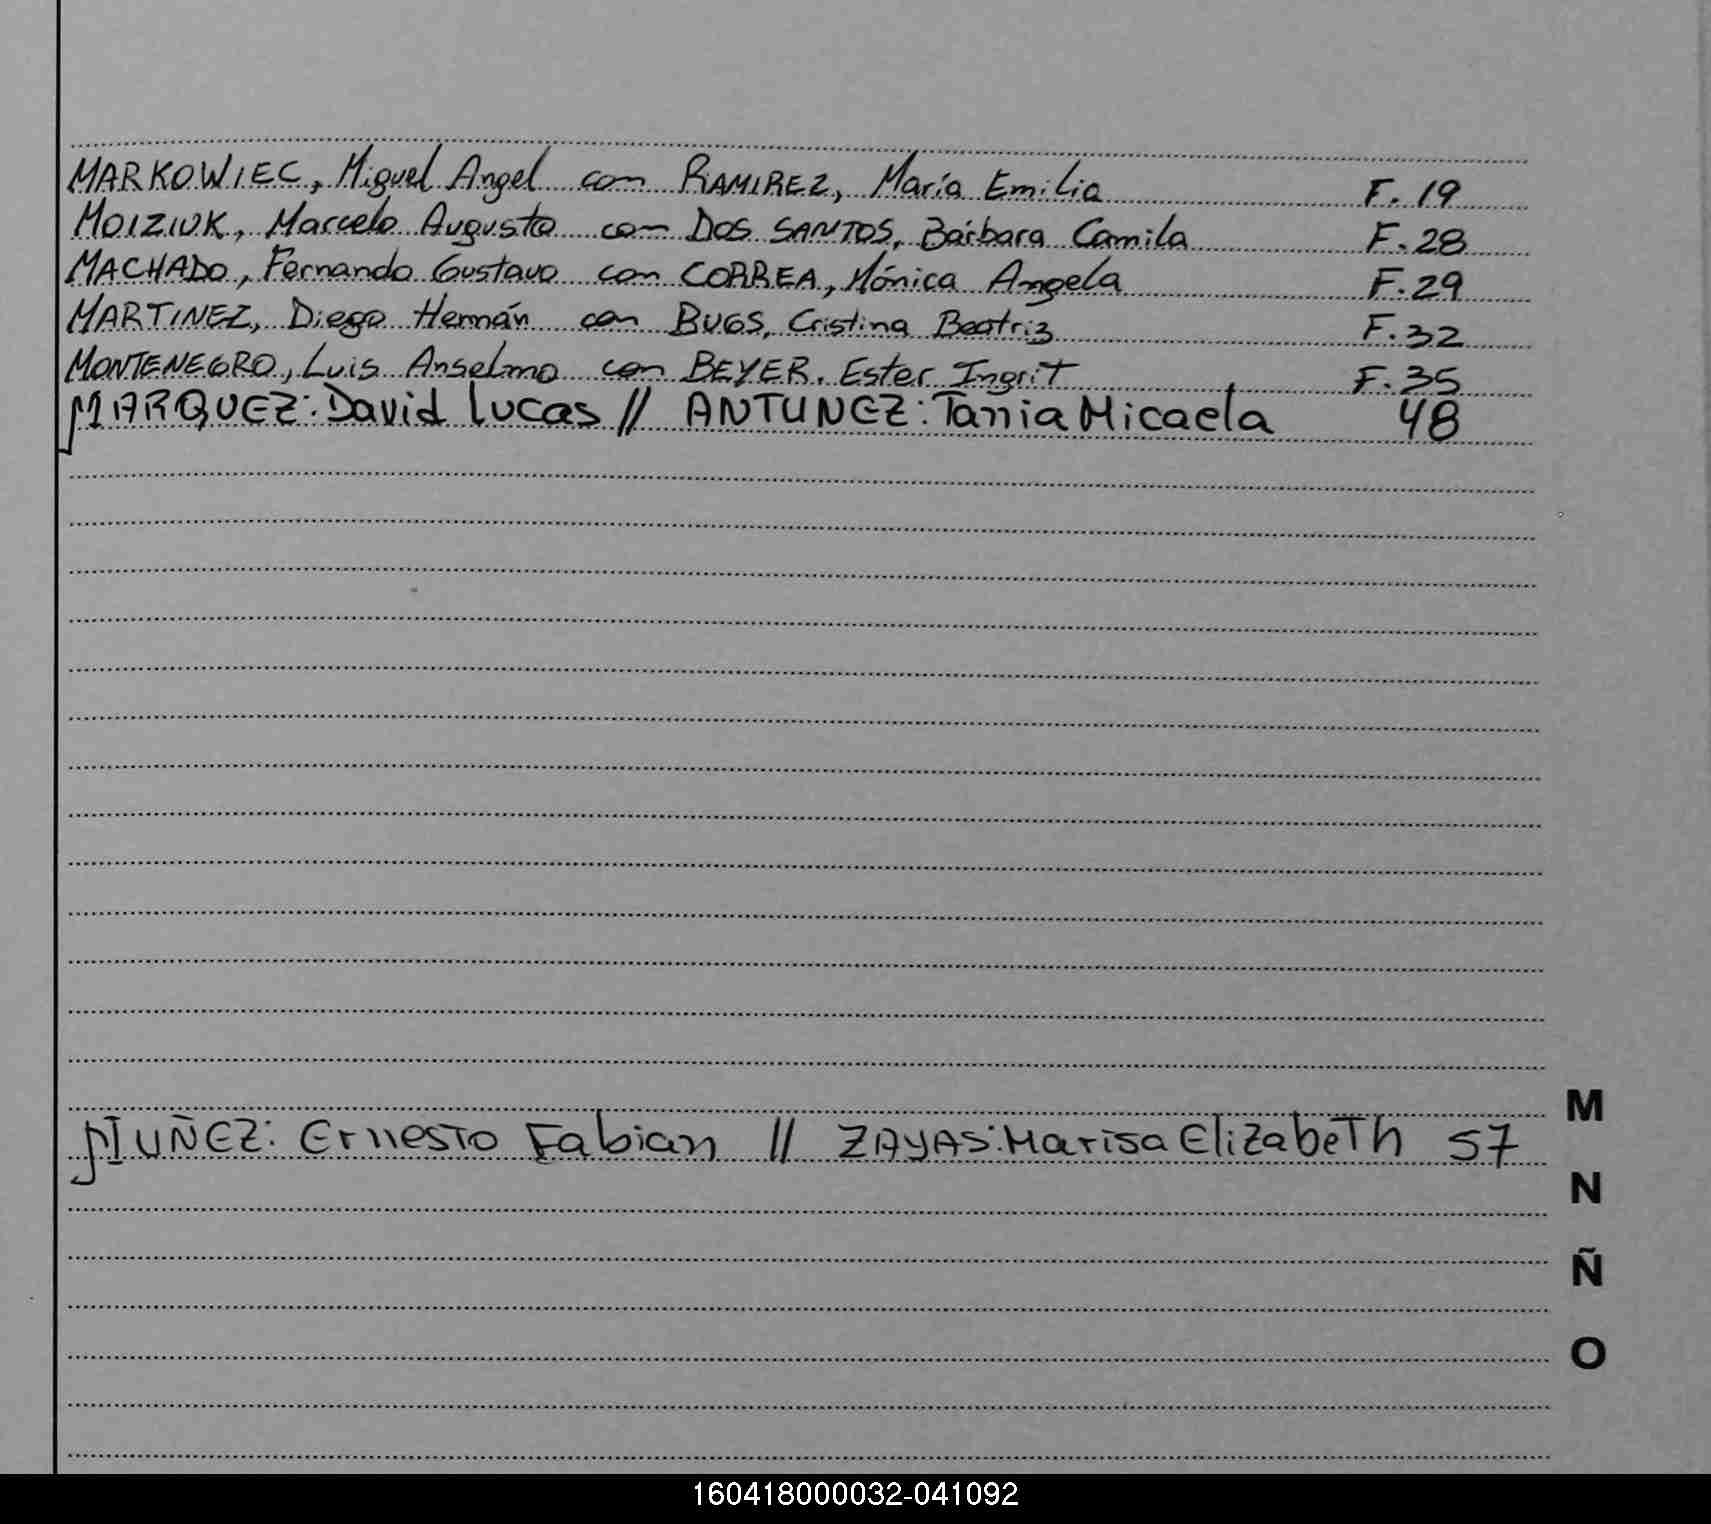 MARKOWIEC, Miguel Angel con RAMIREZ, María Emilia F. 19
MOIZIUK, Marcelo Augusto con DOS SANTOS, Bárbara Camila F. 28
MACHADO, Fernando Gustavo con CORREA, Mónica Angela F. 29
MARTINEZ, Diego Hernán con BUGS, Cristina Beatriz F. 32
MONTENEGRO, Luis Anselmo con BEYER, Ester Ingrit F. 35
MARQUEZ: David Lucas // ANTUNEZ: Tania Micaela 48
M
NUÑEZ: Ernesto Fabian // ZAYAS: Marisa Elizabeth 57
N
Ñ
O
160418000032-041092